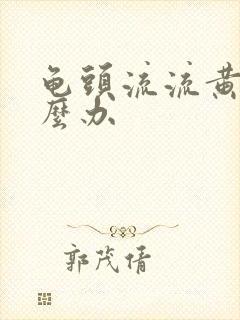 龟頭流流黄
麼办
郭茂倩